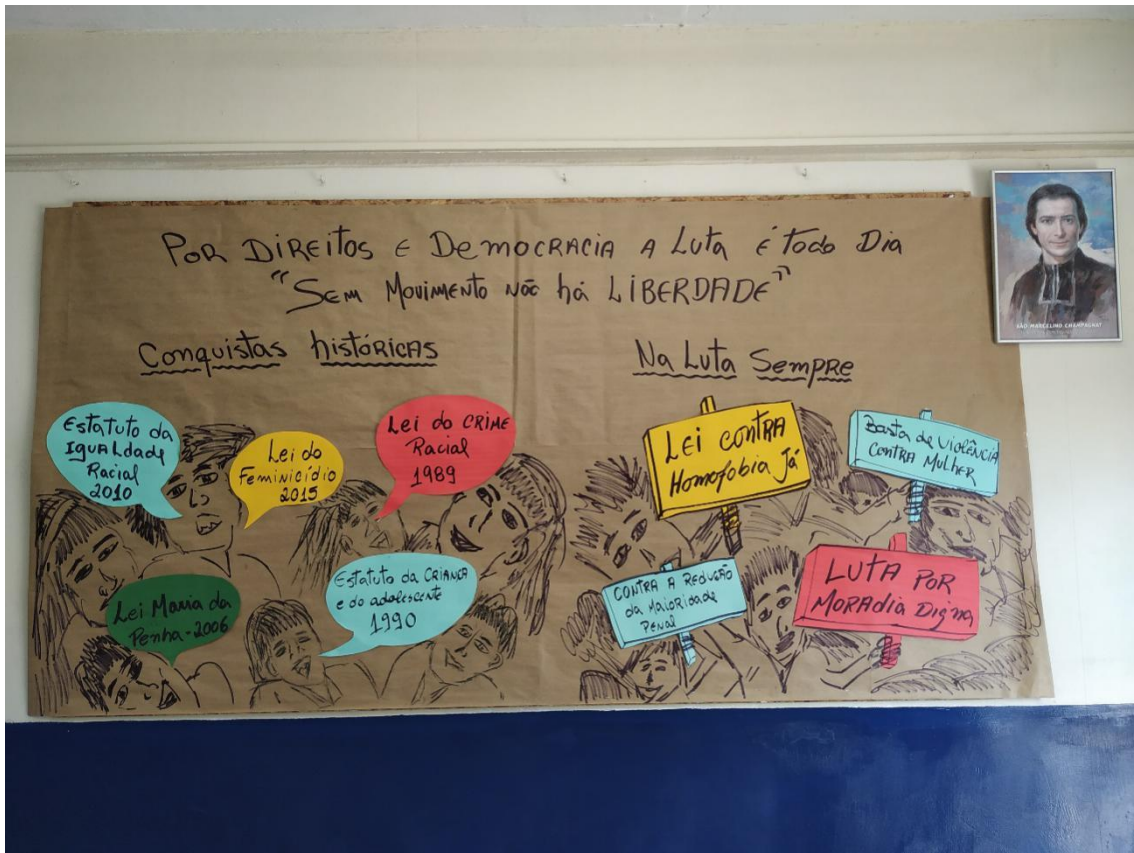 Por Direitos e Democracia a Luta é Todo Dia
"Sem Movimento não há LIBERDADE"
Conquistas históricas
Estatuto da
Igualdade
Racial
2010
Lei do
Feminicídio
2015
Lei do CRIME
Racial
1989
Lei Maria da
Penha-2006
Estatuto da CRIANÇA
e do adolescente
1990
Na Luta Sempre
Lei contra
Homofobia Já
Basta de Violência
Contra Mulher
CONTRA A REDUÇÃO
da Maioridade
Penal
LUTA POR
MORAdia Digna
SÃO MARCELINO CHAMPAGNAT